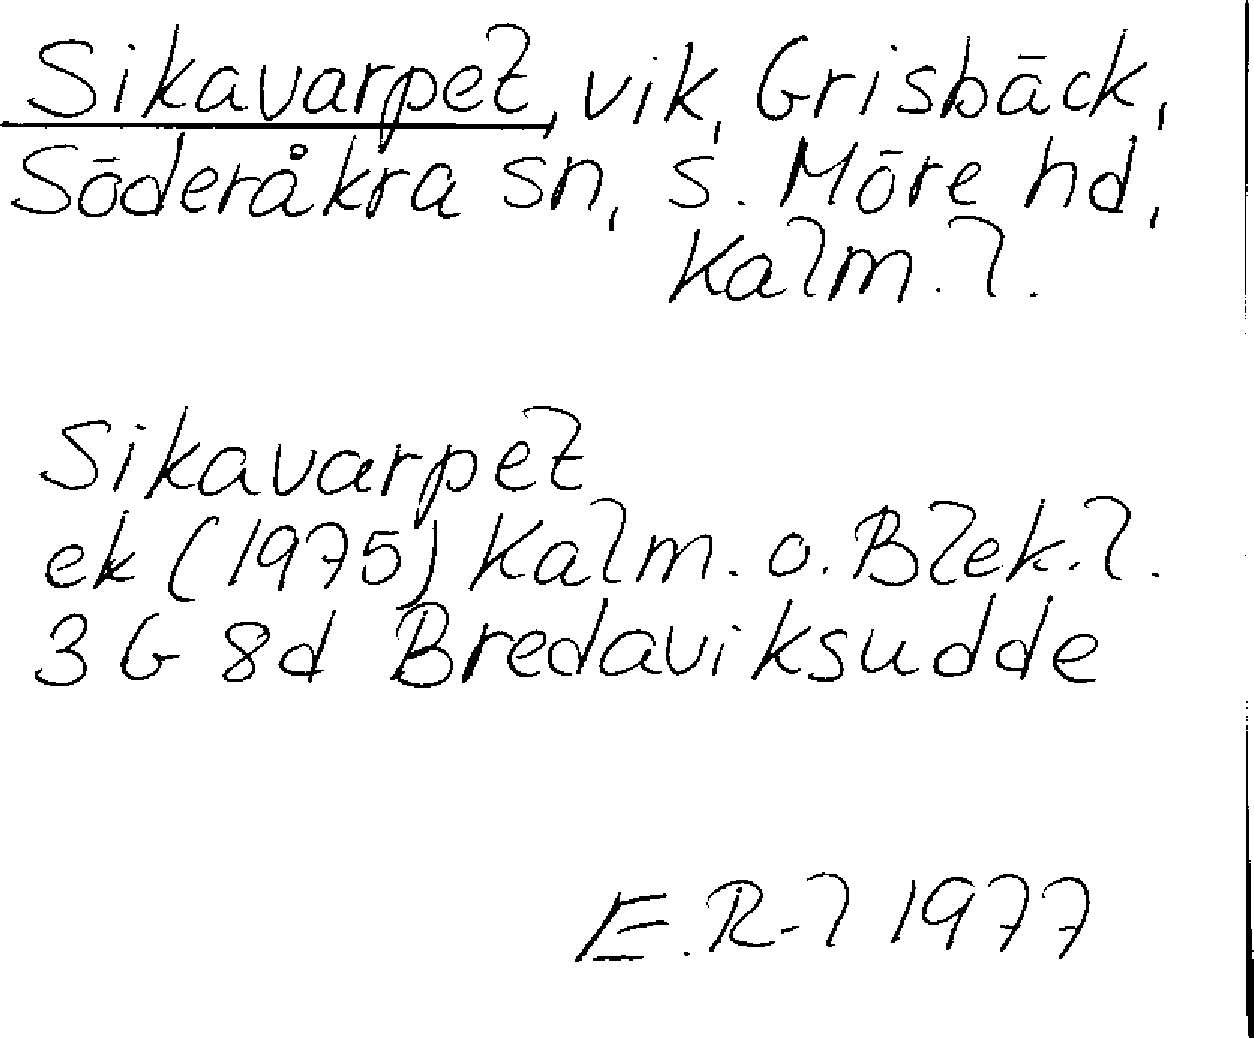 Sikavarpet, vik, Grisbäck,
Söderåkra sn, s. Möre hd,
Kalm. l.
Sikavarpet
ek (1975) Kalm. o. Blek. l.
3 G 8d Bredaviksudde
E. R-l 1977